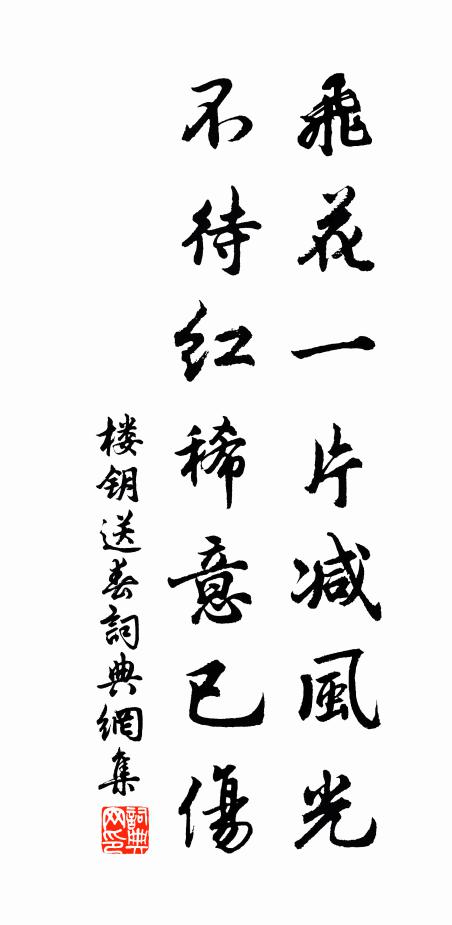 飛花一片减風光
不待红稀意已傷
楼钥送春詞典網集
詞典网印